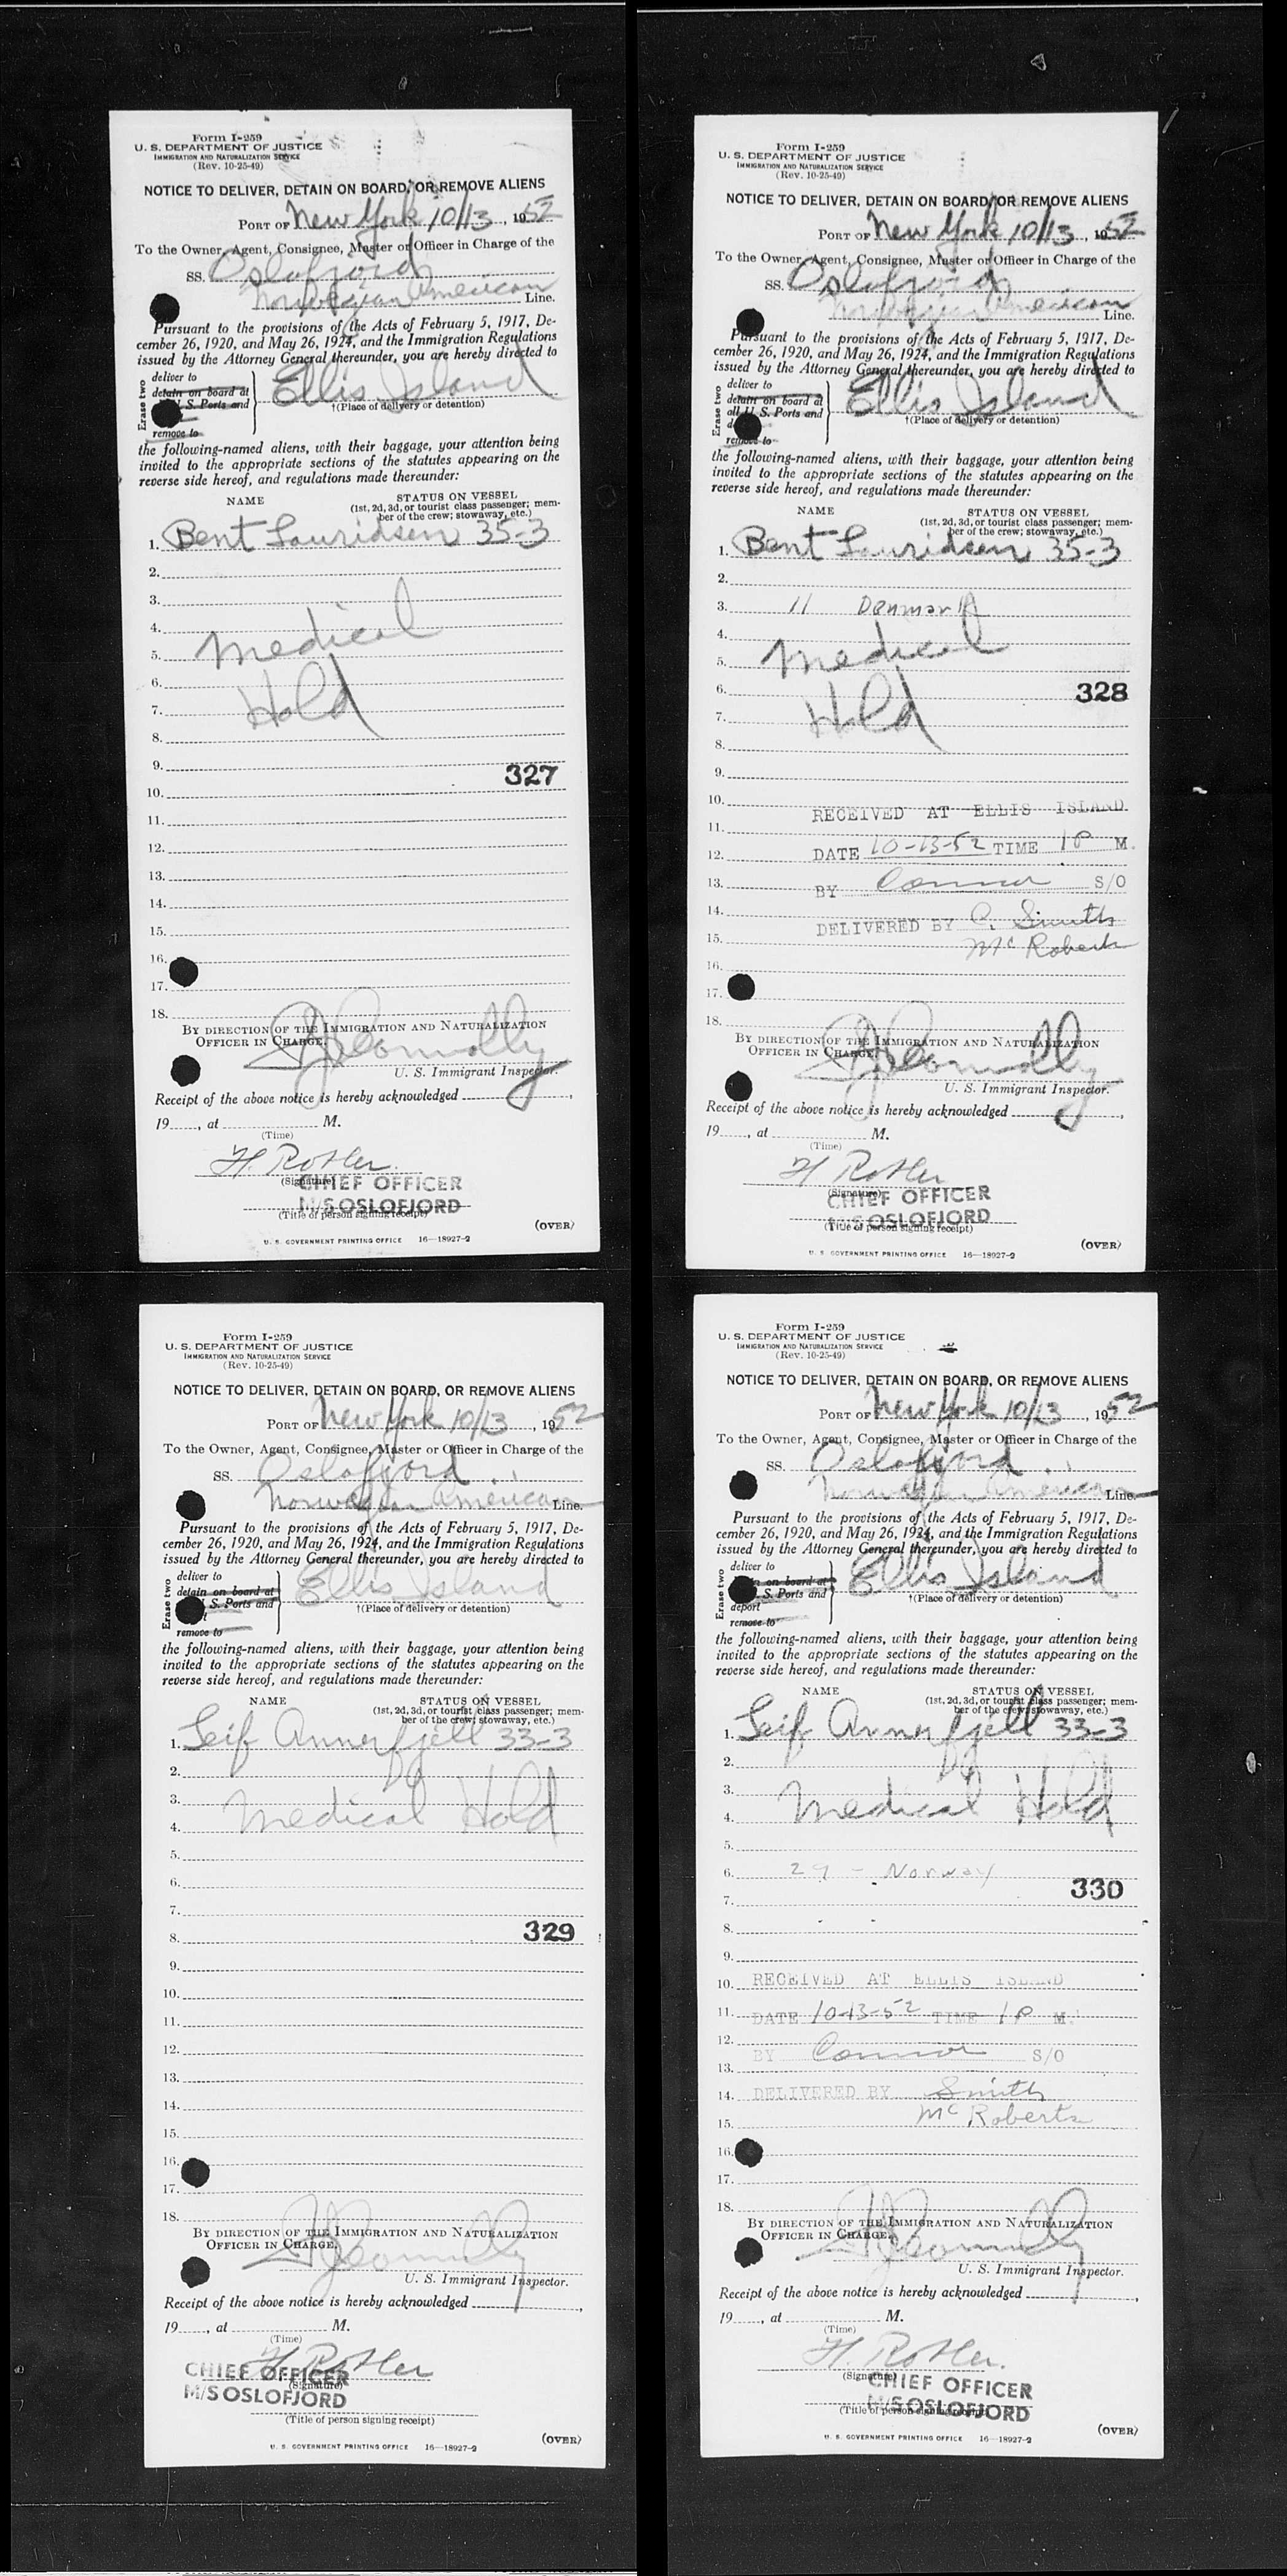 Form I-259
U. S. DEPARTMENT OF JUSTICE
IMMIGRATION AND NATURALIZATION SERVICE
(Rev. 10-25-49)
NOTICE TO DELIVER, DETAIN ON BOARD, OR REMOVE ALIENS
PORT OF New York 10/13, 1952
To the Owner, Agent, Consignee, Master or Officer in Charge of the
SS. Oslofjord
Norwegian American Line.
Pursuant to the provisions of the Acts of February 5, 1917, De-
cember 26, 1920, and May 26, 1924, and the Immigration Regulations
issued by the Attorney General thereunder, you are hereby directed to
Erase two
deliver to
detain on board at
U. S. Ports and
remove to
Ellis Island
†(Place of delivery or detention)
the following-named aliens, with their baggage, your attention being
invited to the appropriate sections of the statutes appearing on the
reverse side hereof, and regulations made thereunder:
NAME STATUS ON VESSEL
(1st, 2d, 3d, or tourist class passenger; mem-
ber of the crew; stowaway, etc.)
1. Bent Lauridsen 35-3
2.
3.
4.
5. Medical
6.
7. Hold
8.
9. 327
10.
11.
12.
13.
14.
15.
16.
17.
18.
BY DIRECTION OF THE IMMIGRATION AND NATURALIZATION
OFFICER IN CHARGE.
Connolly
U. S. Immigrant Inspector.
Receipt of the above notice is hereby acknowledged
19, at M.
(Time)
H. Rotler.
(Signature)
CHIEF OFFICER
M/S OSLOFJORD
(Title of person signing receipt)
(OVER)
U. S. GOVERNMENT PRINTING OFFICE 16—18927-2
Form I-259
U. S. DEPARTMENT OF JUSTICE
IMMIGRATION AND NATURALIZATION SERVICE
(Rev. 10-25-49)
NOTICE TO DELIVER, DETAIN ON BOARD, OR REMOVE ALIENS
PORT OF New York 10/13, 1952
To the Owner, Agent, Consignee, Master or Officer in Charge of the
SS. Oslofjord
Norwegian American
Line.
Pursuant to the provisions of the Acts of February 5, 1917, De-
cember 26, 1920, and May 26, 1924, and the Immigration Regulations
issued by the Attorney General thereunder, you are hereby directed to
Erase two
deliver to
detain on board at
all U. S. Ports and
remove to
Ellis Island
†(Place of delivery or detention)
the following-named aliens, with their baggage, your attention being
invited to the appropriate sections of the statutes appearing on the
reverse side hereof, and regulations made thereunder:
NAME STATUS ON VESSEL
(1st, 2d, 3d, or tourist class passenger; mem-
ber of the crew; stowaway, etc.)
1. Bent Lauridsen 35-3
2.
3. 11 Denmark
4.
5. Medical
6. 328
7. Hold
8.
9.
10. RECEIVED AT ELLIS ISLAND
11.
12. DATE 10-13-52 TIME 1 P M.
13. BY Connor S/O
14. DELIVERED BY C. Smith
15. McRoberts
16.
17.
18.
BY DIRECTION OF THE IMMIGRATION AND NATURALIZATION
OFFICER IN CHARGE.
Connolly
U. S. Immigrant Inspector.
Receipt of the above notice is hereby acknowledged
19, at M.
(Time)
H Rotler
(Signature)
CHIEF OFFICER
M/S OSLOFJORD
(Title of person signing receipt)
(OVER)
U. S. GOVERNMENT PRINTING OFFICE 16—18927-2
Form I-259
U. S. DEPARTMENT OF JUSTICE
IMMIGRATION AND NATURALIZATION SERVICE
(Rev. 10-25-49)
NOTICE TO DELIVER, DETAIN ON BOARD, OR REMOVE ALIENS
PORT OF New York 10/13, 1952
To the Owner, Agent, Consignee, Master or Officer in Charge of the
SS. Oslofjord
Norwegian American Line.
Pursuant to the provisions of the Acts of February 5, 1917, De-
cember 26, 1920, and May 26, 1924, and the Immigration Regulations
issued by the Attorney General thereunder, you are hereby directed to
Erase two
deliver to
detain on board at
S. Ports and
remove to
Ellis Island
†(Place of delivery or detention)
the following-named aliens, with their baggage, your attention being
invited to the appropriate sections of the statutes appearing on the
reverse side hereof, and regulations made thereunder:
NAME STATUS ON VESSEL
(1st, 2d, 3d, or tourist class passenger; mem-
ber of the crew; stowaway, etc.)
1. Leif Annerfjell 33-3
2.
3.
4. Medical Hold
5.
6.
7.
8. 329
9.
10.
11.
12.
13.
14.
15.
16.
17.
18.
BY DIRECTION OF THE IMMIGRATION AND NATURALIZATION
OFFICER IN CHARGE.
Connolly
U. S. Immigrant Inspector.
Receipt of the above notice is hereby acknowledged
19, at M.
(Time)
H. Rotler
CHIEF OFFICER
(Signature)
M/S OSLOFJORD
(Title of person signing receipt)
(OVER)
U. S. GOVERNMENT PRINTING OFFICE 16—18927-2
Form I-259
U. S. DEPARTMENT OF JUSTICE
IMMIGRATION AND NATURALIZATION SERVICE
(Rev. 10-25-49)
NOTICE TO DELIVER, DETAIN ON BOARD, OR REMOVE ALIENS
PORT OF New York 10/13, 1952
To the Owner, Agent, Consignee, Master or Officer in Charge of the
SS. Oslofjord
Norwegian American Line.
Pursuant to the provisions of the Acts of February 5, 1917, De-
cember 26, 1920, and May 26, 1924, and the Immigration Regulations
issued by the Attorney General thereunder, you are hereby directed to
Erase two
deliver to
on board at
S. Ports and
deport
remove to
Ellis Island
†(Place of delivery or detention)
the following-named aliens, with their baggage, your attention being
invited to the appropriate sections of the statutes appearing on the
reverse side hereof, and regulations made thereunder:
NAME STATUS ON VESSEL
(1st, 2d, 3d, or tourist class passenger; mem-
ber of the crew; stowaway, etc.)
1. Leif Annerfjell 33-3
2.
3.
4. Medical Hold
5.
6. 29 - Norway
7. 330
8.
9.
10. RECEIVED AT ELLIS ISLAND
11. DATE 10-13-52 TIME 1 P M.
12.
13. BY Connor S/O
14. DELIVERED BY Smith
15. McRoberts
16.
17.
18.
BY DIRECTION OF THE IMMIGRATION AND NATURALIZATION
OFFICER IN CHARGE.
Connolly
U. S. Immigrant Inspector.
Receipt of the above notice is hereby acknowledged
19, at M.
(Time)
H. Rotler.
(Signature)
CHIEF OFFICER
M/S OSLOFJORD
(Title of person signing receipt)
(OVER)
U. S. GOVERNMENT PRINTING OFFICE 16—18927-2